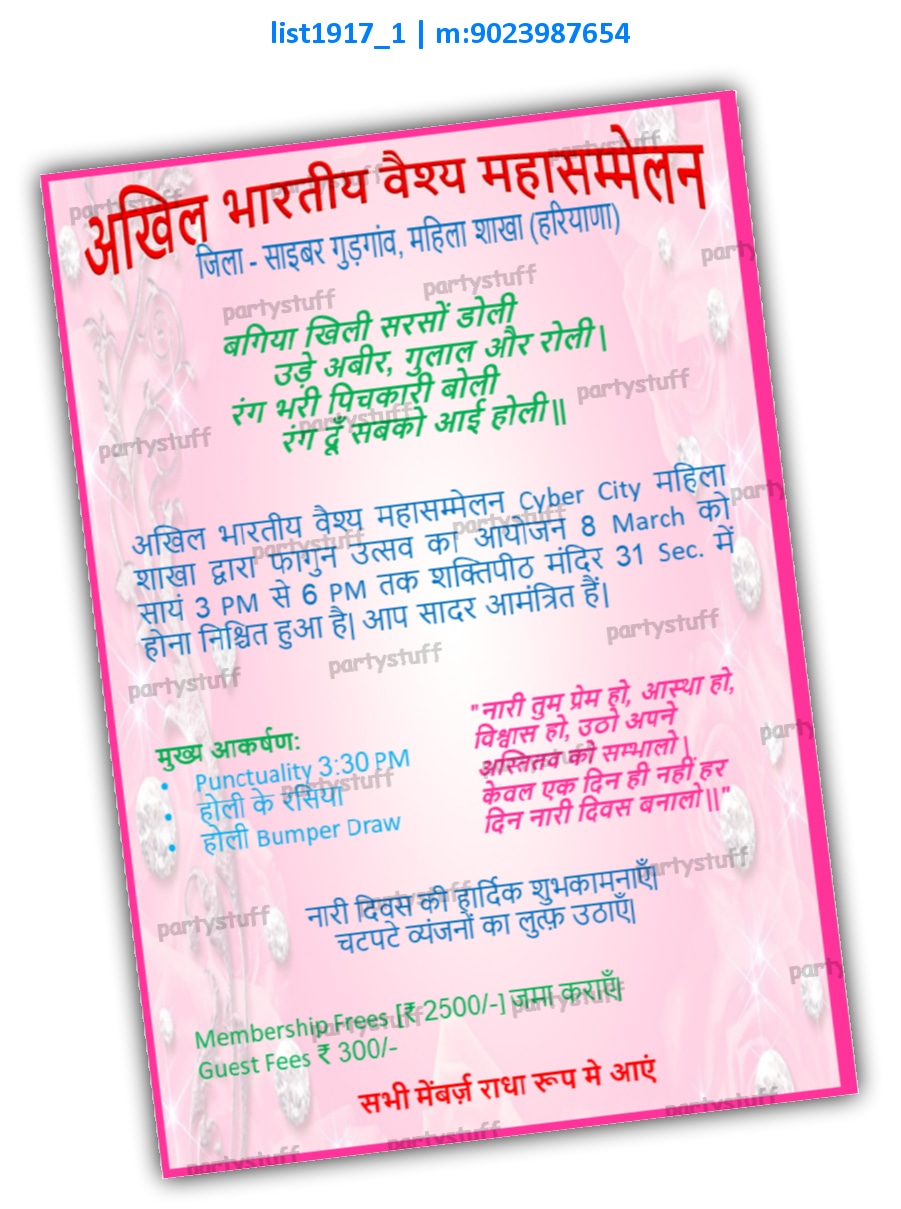 list1917_1 | m:9023987654
अखिल भारतीय वैश्य महासम्मेलन
जिला - साइबर गुड़गांव, महिला शाखा (हरियाणा)
बगिया खिली सरसों डोली
उड़े अबीर, गुलाल और रोली|
रंग भरी पिचकारी बोली
रंग दूँ सबको आई होली||
अखिल भारतीय वैश्य महासम्मेलन Cyber City महिला
शाखा द्वारा फागुन उत्सव का आयोजन 8 March को
सायं 3 PM से 6 PM तक शक्तिपीठ मंदिर 31 Sec. में
होना निश्चित हुआ है| आप सादर आमंत्रित हैं|
मुख्य आकर्षण:
• Punctuality 3:30 PM
• होली के रसिया
• होली Bumper Draw
"नारी तुम प्रेम हो, आस्था हो,
विश्वास हो, उठो अपने
अस्तितव को सम्भालो |
केवल एक दिन ही नहीं हर
दिन नारी दिवस बनालो||"
नारी दिवस की हार्दिक शुभकामनाएँ|
चटपटे व्यंजनों का लुत्फ़ उठाएँ|
Membership Frees [₹ 2500/-] जमा कराएँ|
Guest Fees ₹ 300/-
सभी मेंबर्ज़ राधा रूप मे आएं
partystuff